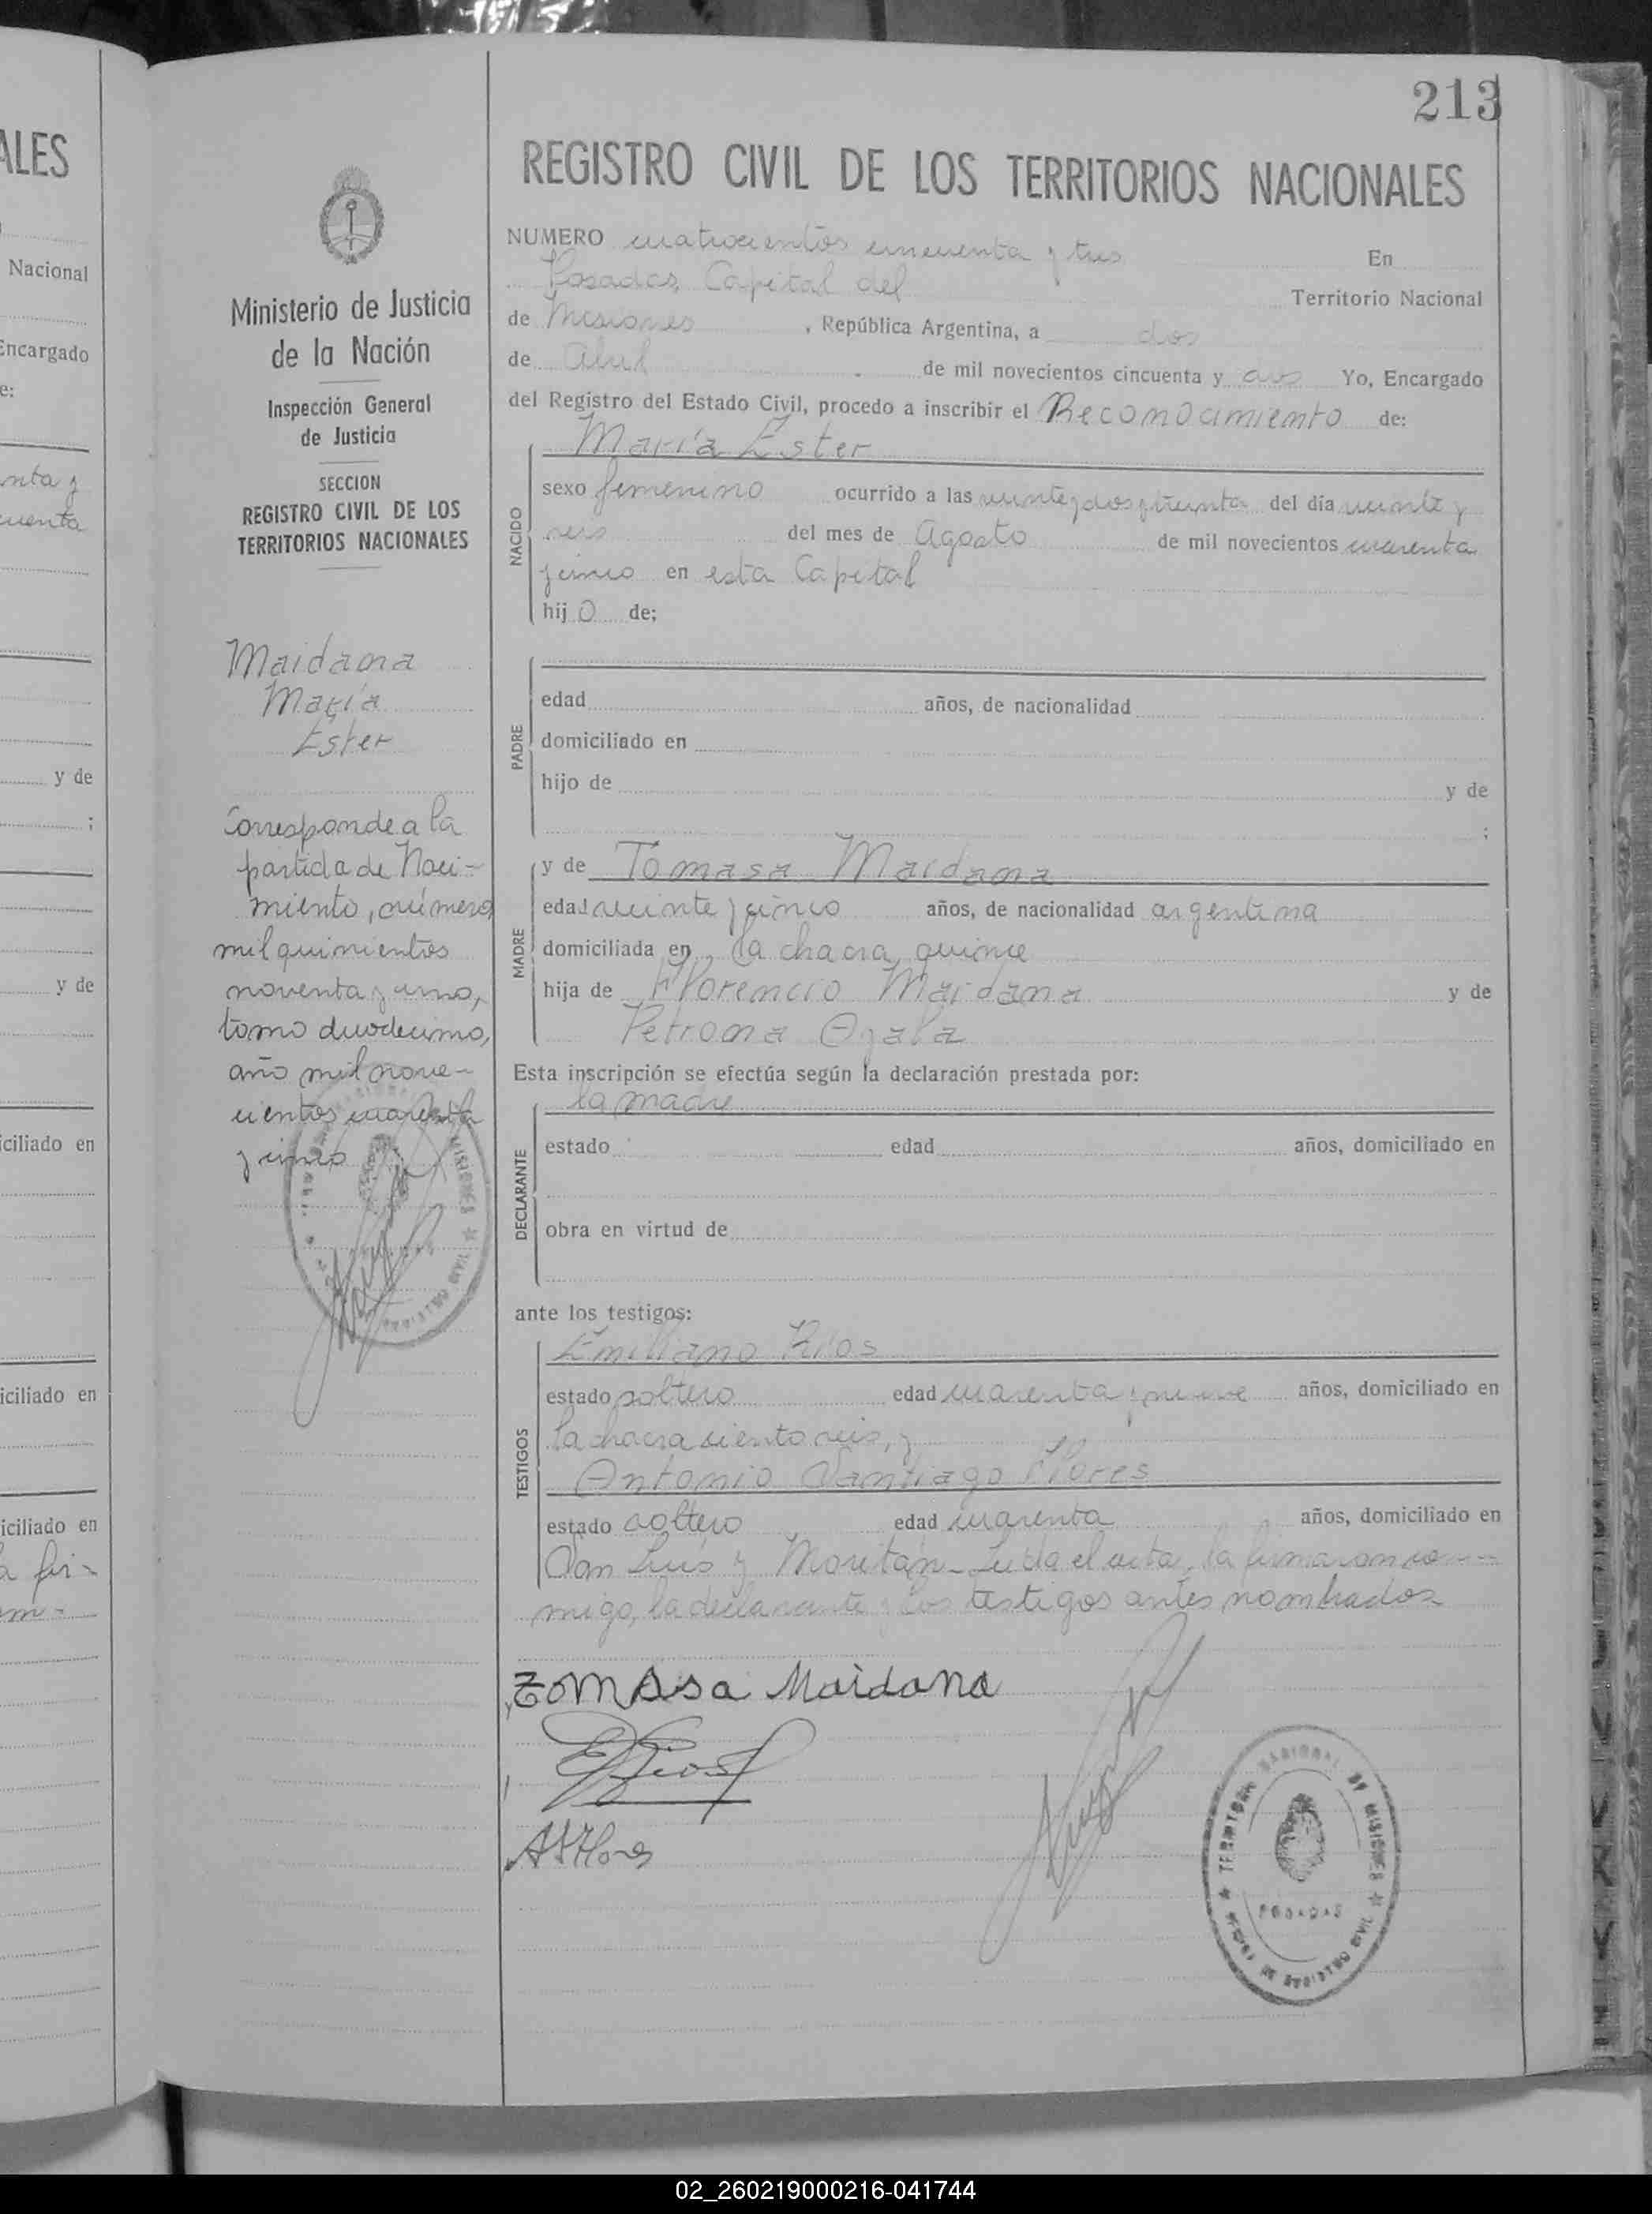 213
ALES
Nacional
Encargado
e:
y de
;
y de
iciliado en
iciliado en
iciliado en
Ministerio de Justicia
de la Nación
Inspección General
de Justicia
SECCION
REGISTRO CIVIL DE LOS
TERRITORIOS NACIONALES
Maidana
María
Ester
Corresponde a la
partida de Naci-
miento, número
mil quinientos
noventa y uno,
tomo duodecimo,
año mil nove-
cientos cuarenta
y cinco
REGISTRO CIVIL DE LOS TERRITORIOS NACIONALES
NUMERO cuatrocientos cincuenta y tres En
Posadas, Capital del Territorio Nacional
de Misiones, República Argentina, a dos
de Abril de mil novecientos cincuenta y dos Yo, Encargado
del Registro del Estado Civil, procedo a inscribir el Reconocimiento de:
María Ester
NACIDO
sexo femenino ocurrido a las veinte y dos y treinta del día veinte y
seis del mes de Agosto de mil novecientos cuarenta
y cinco en esta Capital
hijo de;
PADRE
edad años, de nacionalidad
domiciliado en
hijo de y de
;
MADRE
y de Tomasa Maidana
edad veinte y cinco años, de nacionalidad argentina
domiciliada en la chacra quince
hija de Florencio Maidana y de
Petrona Ayala
Esta inscripción se efectúa según la declaración prestada por:
la madre
DECLARANTE
estado edad años, domiciliado en
obra en virtud de
ante los testigos:
TESTIGOS
Emiliano Ríos
estado soltero edad cuarenta y nueve años, domiciliado en
la chacra ciento seis, y
Antonio Santiago Flores
estado soltero edad cuarenta años, domiciliado en
San Luis y Moritán - Leida el acta, la firmaron co---
migo, la declarante y los testigos antes nombrados
Tomasa Maidana
E Rios
ASFlores
TERRITORIO NACIONAL DE MISIONES
POSADAS
REGISTRO CIVIL
02_260219000216-041744